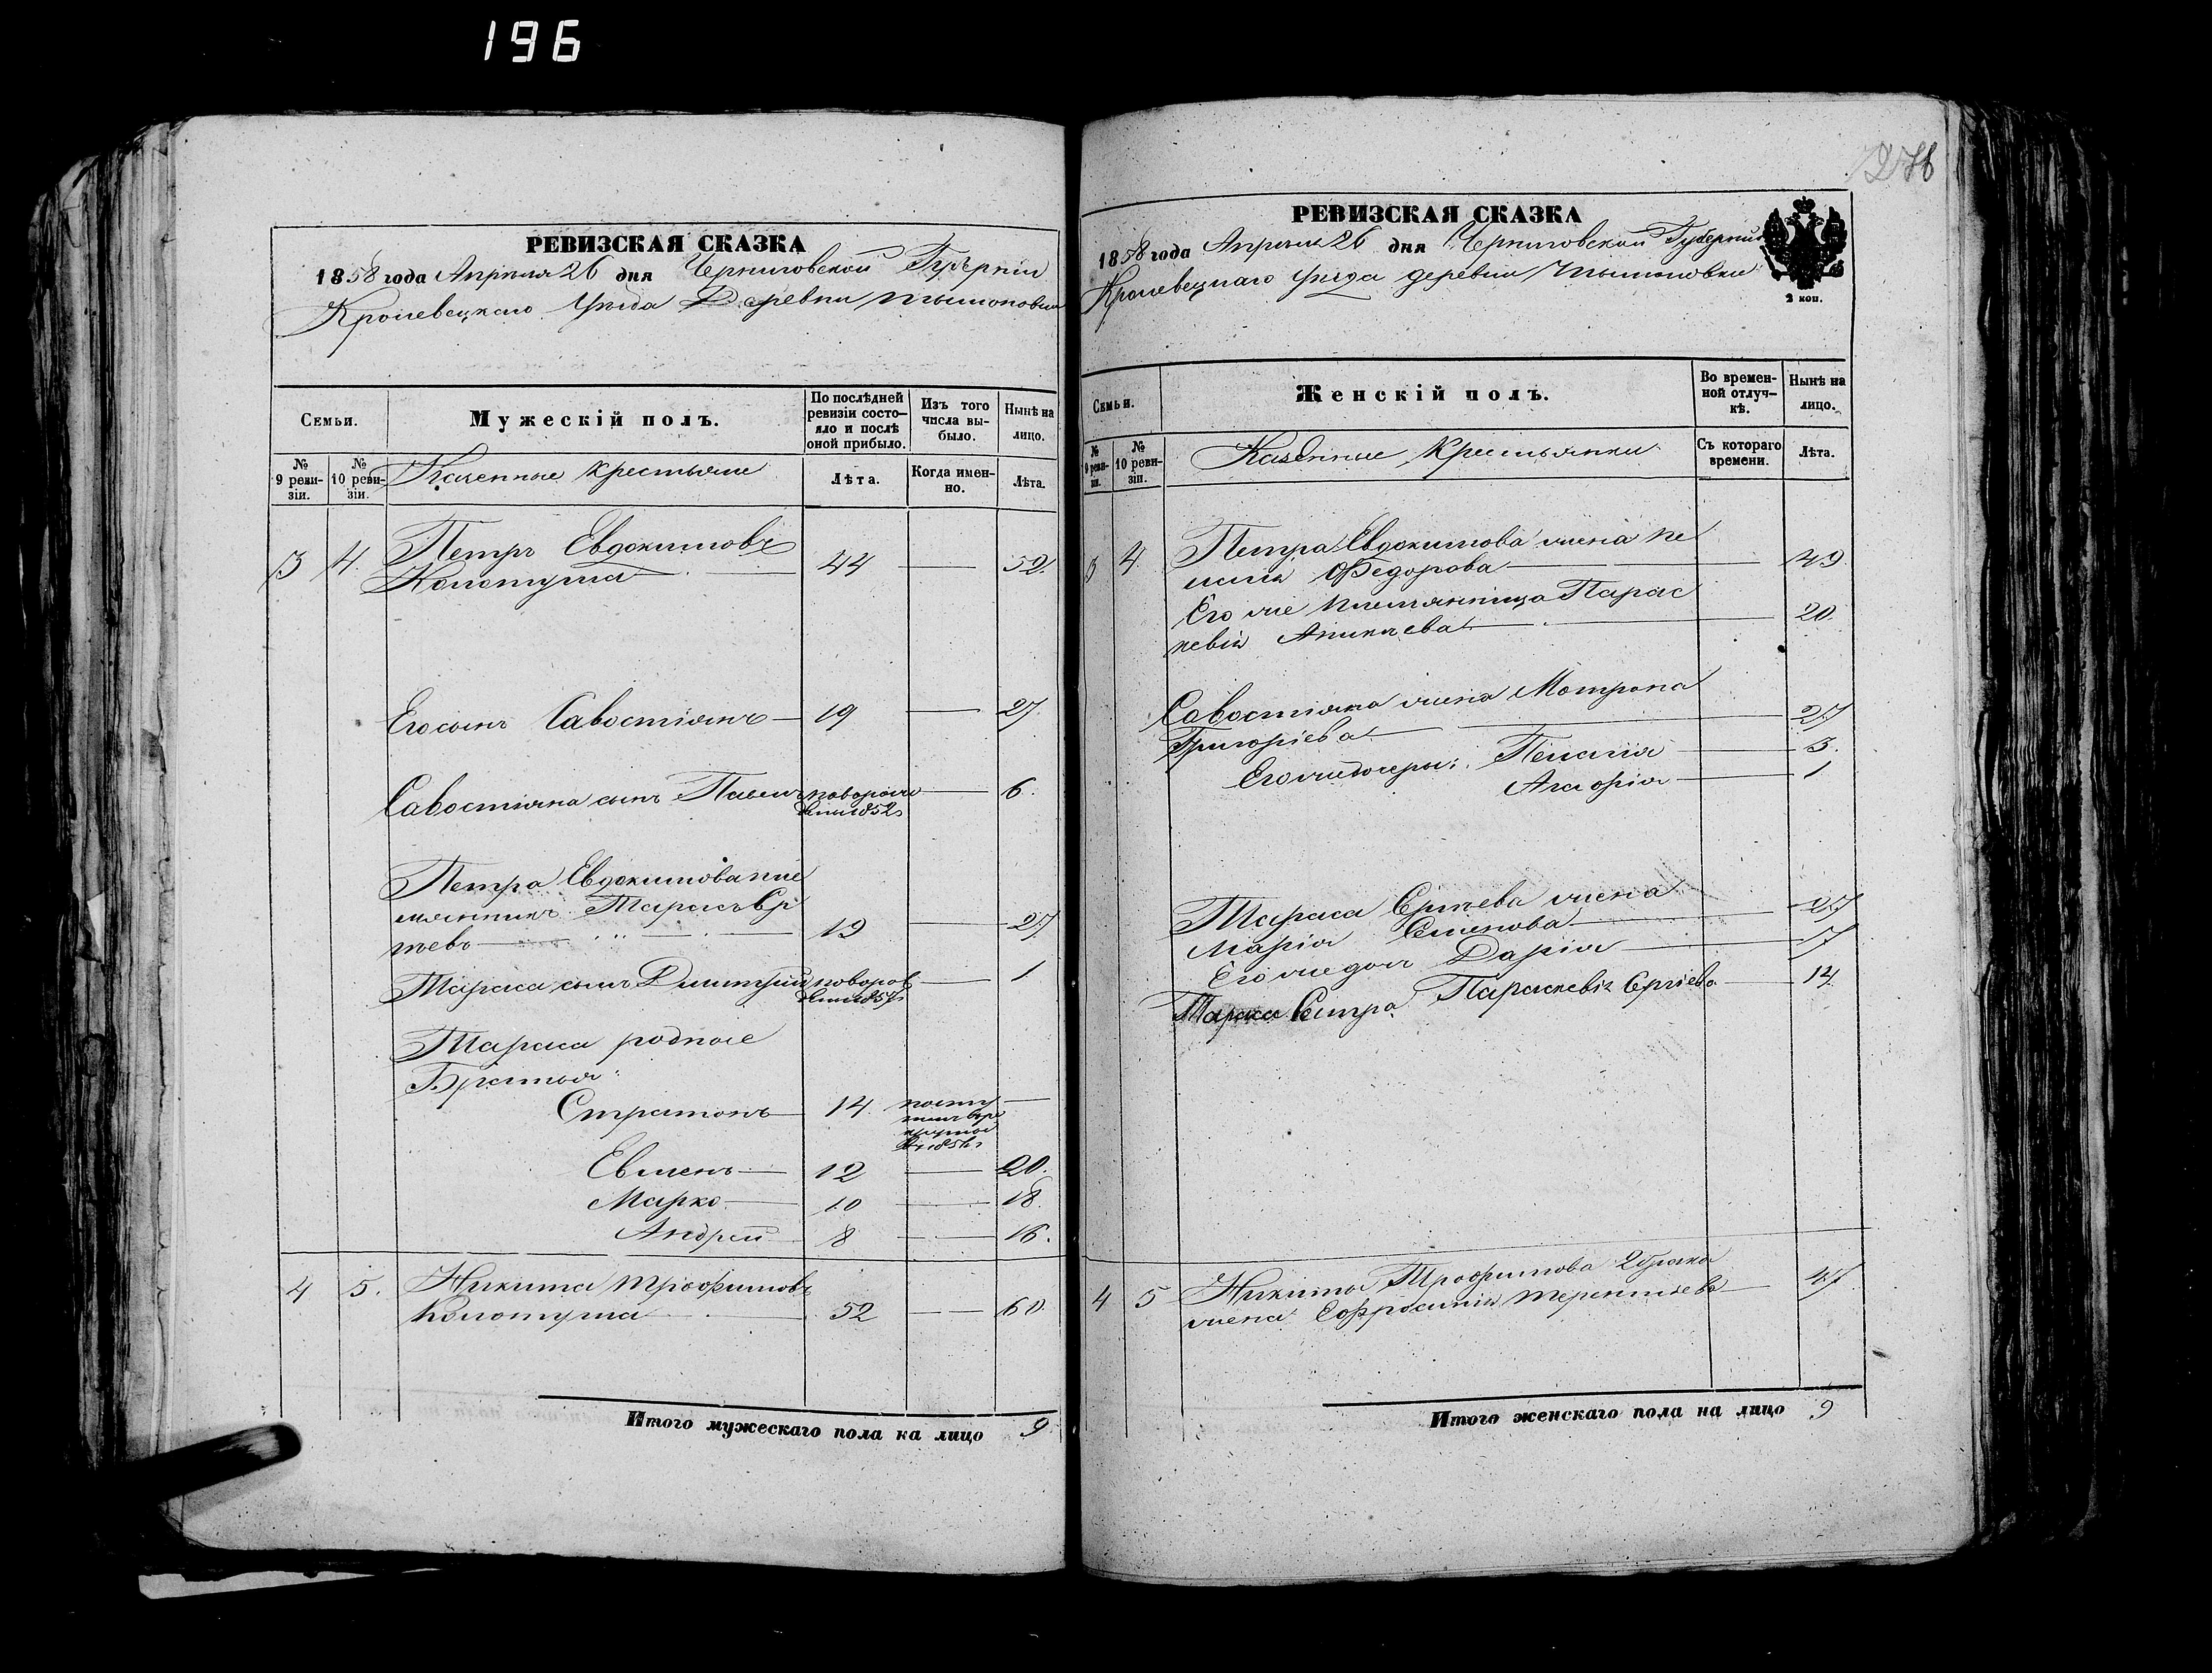 196
РЕВИЗСКАЯ СКАЗКА
1858 года Апреля 26 дня Черниговской Губернии
Кролевецкаго Уезда Деревни
Семьи.
Мужескій полъ.
По послѣдней ревизіи состояло и послѣ оной прибыло.
Изъ того числа выбыло.
Нынѣ на лицо.
№ 9 ревизіи.
№ 10 ревизіи.
Казенные крестьяне
Лѣта.
Когда именно.
Лѣта.
3 4. Петръ Евдокимовъ
Колотуша 44 52.
Его сынъ Савостіянъ 19 27.
Савостіяна сынъ Павелъ 6.
1852
Петра Евдокимова пле
мянникъ Тарасъ Ер
19 27
Тараса сынъ Дмитрий 1
Тараса родные
Братья:
Стратонъ 14.
Евменъ 12 20.
Марко 10 18.
Андрей 8 16.
4 5. Никита Трофимовъ
Колотуша 52 60.
Итого мужескаго пола на лицо 9
РЕВИЗСКАЯ СКАЗКА
1858 года Апреля 26 дня Черниговской Губернии
Кролевецкаго Уезда деревни
2 коп.
Семьи.
Женскій полъ.
Во временной отлучкѣ.
Нынѣ на лицо.
№ 9 ревизіи.
№ 10 ревизіи.
Казенные Крестьянки
Съ котораго времени.
Лѣта.
3 4 Петра Евдокимова жена Пе
лагія Федорова 49
Его же племянница Парас
кевія 20
Савостіяна жена Мотрона
Григоріева 27
Его же дочери: Пелагія 3.
Агафія 1
Тараса жена
Марія Семенова 27
Его же доч Дарія 7
Тараса Сестра Параскевія 14
4 5 Никиты Трофимова 2 брака
жена Ефросинія Терентиева 47
Итого женскаго пола на лицо 9